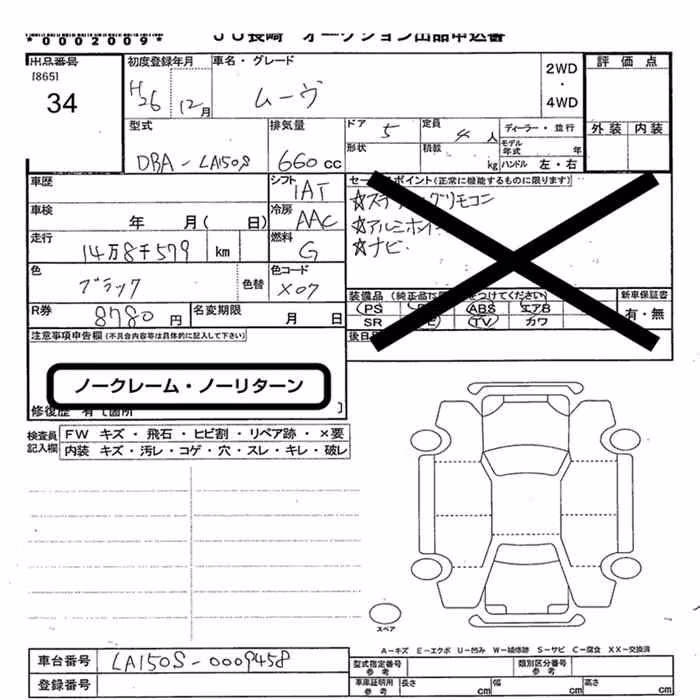 *0002009*
JU長崎 オークション出品申込書
出品番号
[865]
34
初度登録年月
H26 12月
車名・グレード
ムーヴ
2WD
・
4WD
評価点
外装 内装
型式
DBA-LA150S
排気量
660cc
ドア 5
定員 4人
形状
積載 kg
ディーラー・並行
モデル年式 年
ハンドル 左・右
車歴
シフト IAT
車検 年 月( 日)
冷房 AAC
走行 14万8千579 km
燃料 G
色 ブラック
色替
色コード X07
R券 8780円
名変期限 月 日
セールスポイント(正常に機能するものに限ります)
☆ステアリングリモコン
☆アルミホイ
☆ナビ
装備品(純正品に をつけてください)
PS ABS エアB
SR TV カワ
新車保証書
有・無
後日
注意事項申告欄(不具合内容等は具体的に記入して下さい)
ノークレーム・ノーリターン
修復歴 有[箇所 ]
検査員記入欄
FW キズ・飛石・ヒビ割・リペア跡・×要
内装 キズ・汚レ・コゲ・穴・スレ・キレ・破レ
スペア
A-キズ E-エクボ U-凹み W-補修跡 S-サビ C-腐食 XX-交換済
車台番号 LA150S-0009458
登録番号
型式指定番号 参考
類別区分番号 参考
車庫証明用 参考
長さ cm
幅 cm
高さ cm